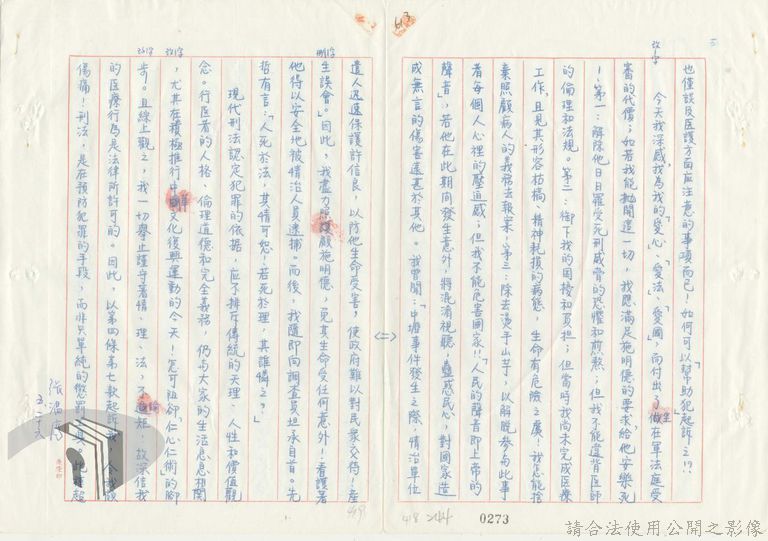 也僅談及医護方面应注意的事項而已!如何可以「幫助犯」起訴之!?
今天我深感,我為我的「愛心」、「愛法」、「愛國」,而付出了做在軍法庭受
審的代價;如若我能拋開這一切,我應滿足施明德的要求,給他安樂死
!第一:解除他日日罹受死刑威脅的恐懼和煎熬;但我不能違背医師
的倫理和法規。第二:卸下我的困擾和負担;但當時我尚未完成医療
工作,且見其形容枯槁、精神耗損的病態,生命有危險之虞!我怎能捨
棄照顧病人的義務去報案!第三:除去燙手山芋,以解脫參与此事
者每個人心裡的壓迫感;但我不能危害國家!!「人民的聲音即上帝的
聲音」,若他在此期间發生意外,將混淆視聽、蠱惑民心,對國家造
成無言的傷害遠甚於其他。我曾聞:「中壢事件發生之際,情治單位
<二>
遣人迅速保護許信良,以防他生命受害,使政府難以對民眾交待!產
生誤會。」因此,我盡力看護顧施明德,免其生命受任何意外!看護著
他得以安全地被情治人員逮捕。而後,我隨即向調查員坦承自首。先
哲有言:「人死於法,其情可恕!若死於理,其誰憐之?」
現代刑法認定犯罪的依据,应了排斥傳統的天理、人性和價值觀
念。行医者的人格、倫理道德和完全義務,仍与大家的生活息息相関
,尤其在積極推行中華文化復興運動的今天!怎可阻卻仁心仁術的腳
步。且線上觀之,我一切舉止謹守著情、理、法,不逾矩,故深信我
的医療行為是法律所許可的。因此,以第四條第七款起訴我,令我頗
傷痛!刑法,是在預防犯罪的手段,而非只單純的懲罰
張溫鷹
五、二十六
改字
刪字
改字
改字
613
5
418
244
0273
請合法使用公開之影像